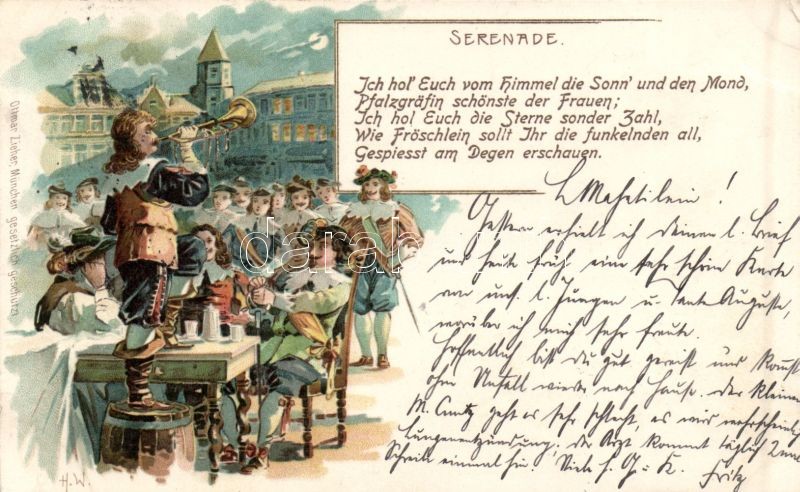 SERENADE.
Ich hol' Euch vom Himmel die Sonn' und den Mond,
Pfalzgräfin schönste der Frauen;
Ich hol Euch die Sterne sonder Zahl,
Wie Fröschlein sollt Ihr die funkelnden all,
Gespiesst am Degen erschauen.
Ottmar Zieher, München gesetzlich geschützt.
L. !
Gestern erhielt ich deinen l. Brief
und heute früh eine sehr schöne Karte
von uns. l. Jungen u. Tante Auguste,
worüber ich mich sehr freute.
Hoffentlich bist du gut gereist und kommst
ohne Unfall wieder nach Hause. Der kleinen
M. geht es sehr schlecht, es wird wahrscheinlich
Lungenentzündung. Der Arzt kommt täglich 2 mal
Schreib einmal hin. Viele h. G. u. K. Fritz
H.W.
darabanth